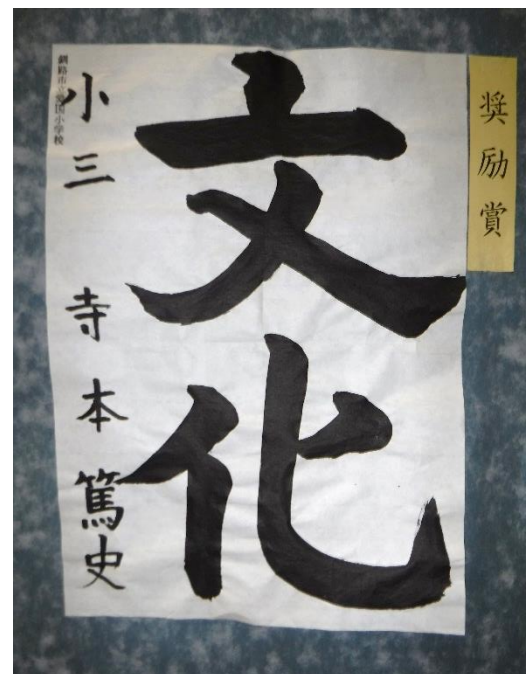 奨励賞
文化
釧路市立愛国小学校
小三 寺本篤史